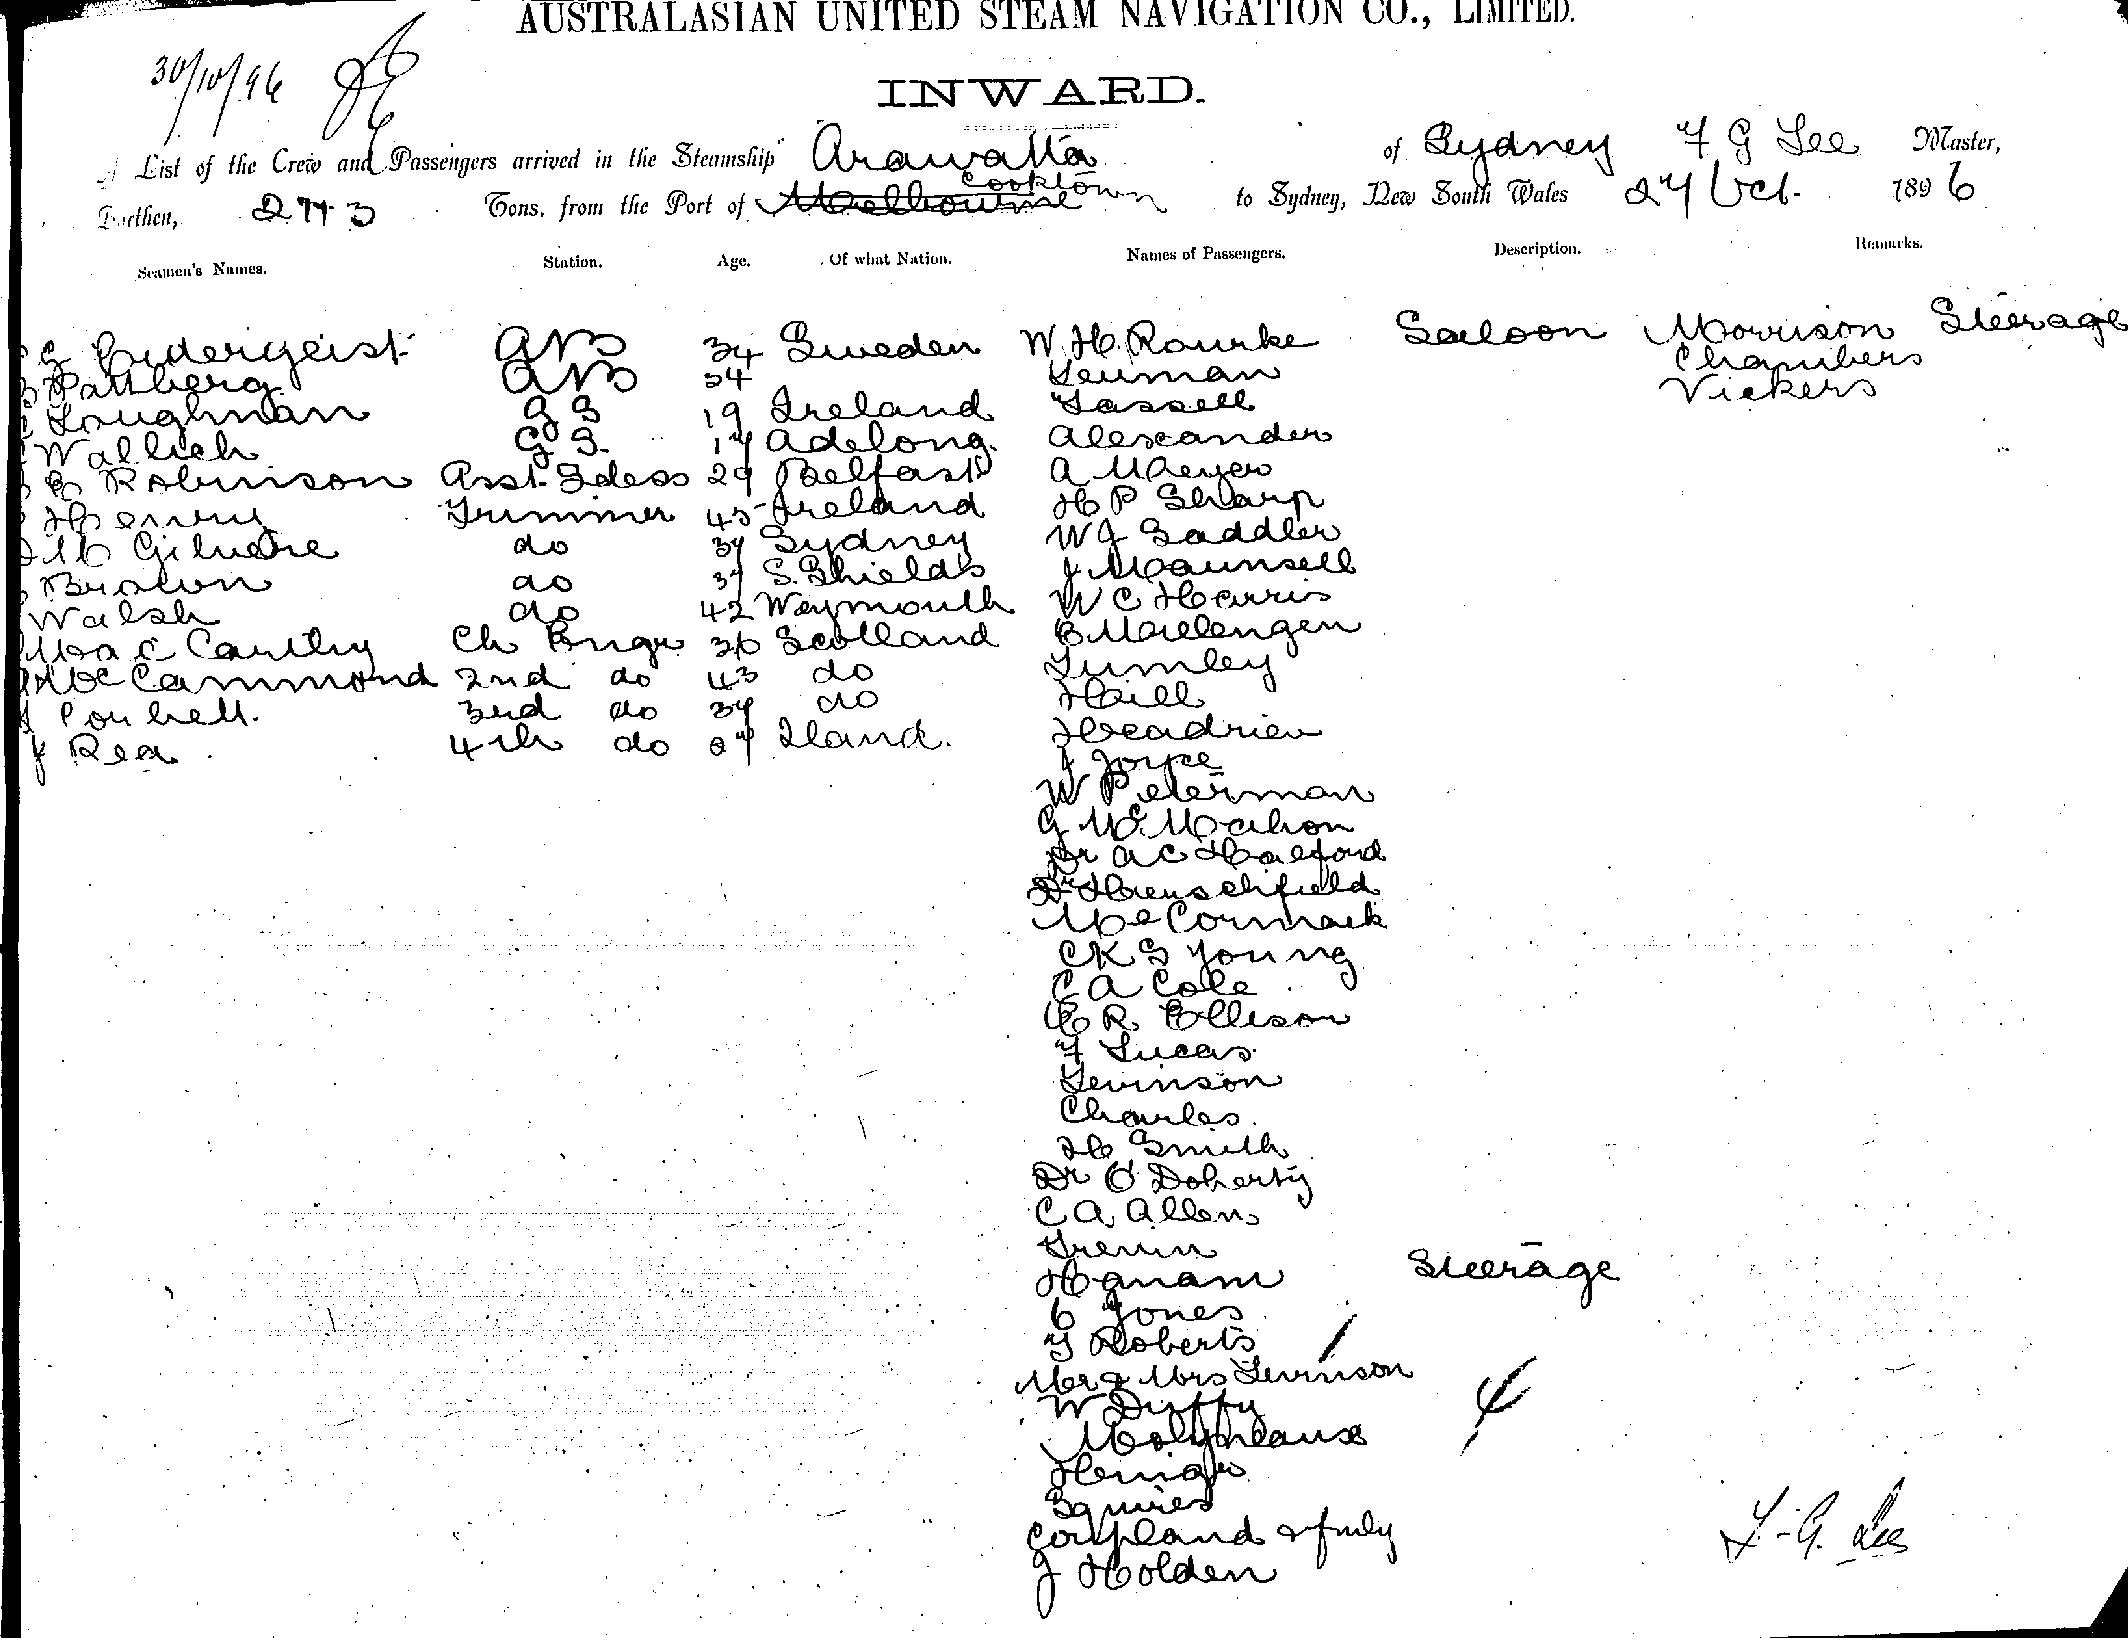 AUSTRALASIAN UNITED STEAM NAVIGATION CO., LIMITED.
30/10/96
INWARD.
A List of the Crew and Passengers arrived in the Steamship Arawatta of Sydney F G Lee Master,
Burthen, 2773 Tons, from the Port of Melbourne Cooktown to Sydney, New South Wales 27 Oct. 1896
Seamen's Names. Station. Age. Of what Nation. Names of Passengers. Description. Remarks.
G AB 34 Sweden W. H. Rourke Saloon Morrison Steerage
Pattberg AB 34 Leuman Chambers
Loughman GS 19 Ireland Tassell Vickers
Wallich GS. 17 Adelong. Alexander
Robinson Asst Stdess 29 Belfast A Meyer
Henry Trimmer 45 Ireland H P Sharp
do 37 Sydney W J Saddler
Brown do 37 S. Shields J Maunsell
Walsh do 42 Weymouth W C Harris
Mac Carthy Ch Engr 36 Scotland
McCammond 2nd do 43 do Lumley
3rd do 37 do Haill
J Rea 4th do 27 Iland. Headrien
J Joyce
W Peterman
G McMahon
Dr A C Halford
Dr
McCormack
C K S Young
C A Cole
E R. Ellison
F Lucas
Levinson
Charles.
H Smith
Dr O'Doherty
C A Allen
Hanam Steerage
C Jones
T Roberts
Mr & Mrs Levinson
W Duffy
Molyneaux
Squires
Coupland & fmly
J Holden
F. G. Lee